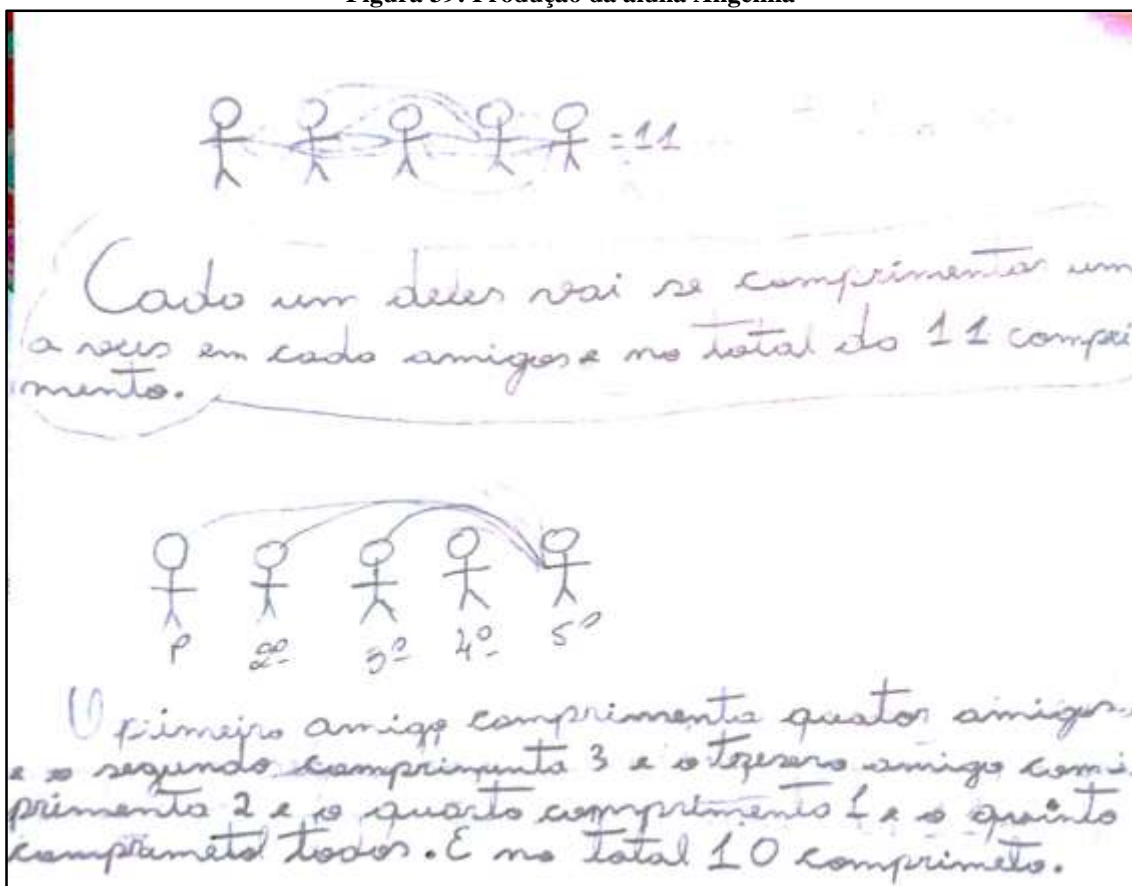 Figura 39: Produção da aluna Angelina
= 11
Cado um deles vai se comprimentar um
a veis em cado amigos e no total do 11 compri
mento.
1º 2º 3º 4º 5º
O primeiro amigo comprimenta quator amigos.
e o segundo comprimenta 3 e o tresero amigo com
primenta 2 e o quarto comprimento 1 e o quinto
todos. E no total 10 comprimeto.